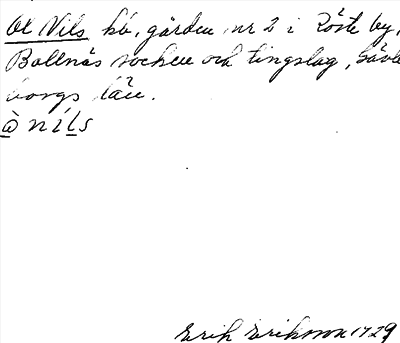 Ol Nils hb, gården nr 2 i Röste by,
Bollnäs socken och tingslag, Gävle
borgs län.
ò nils
Erik Erikson 1729